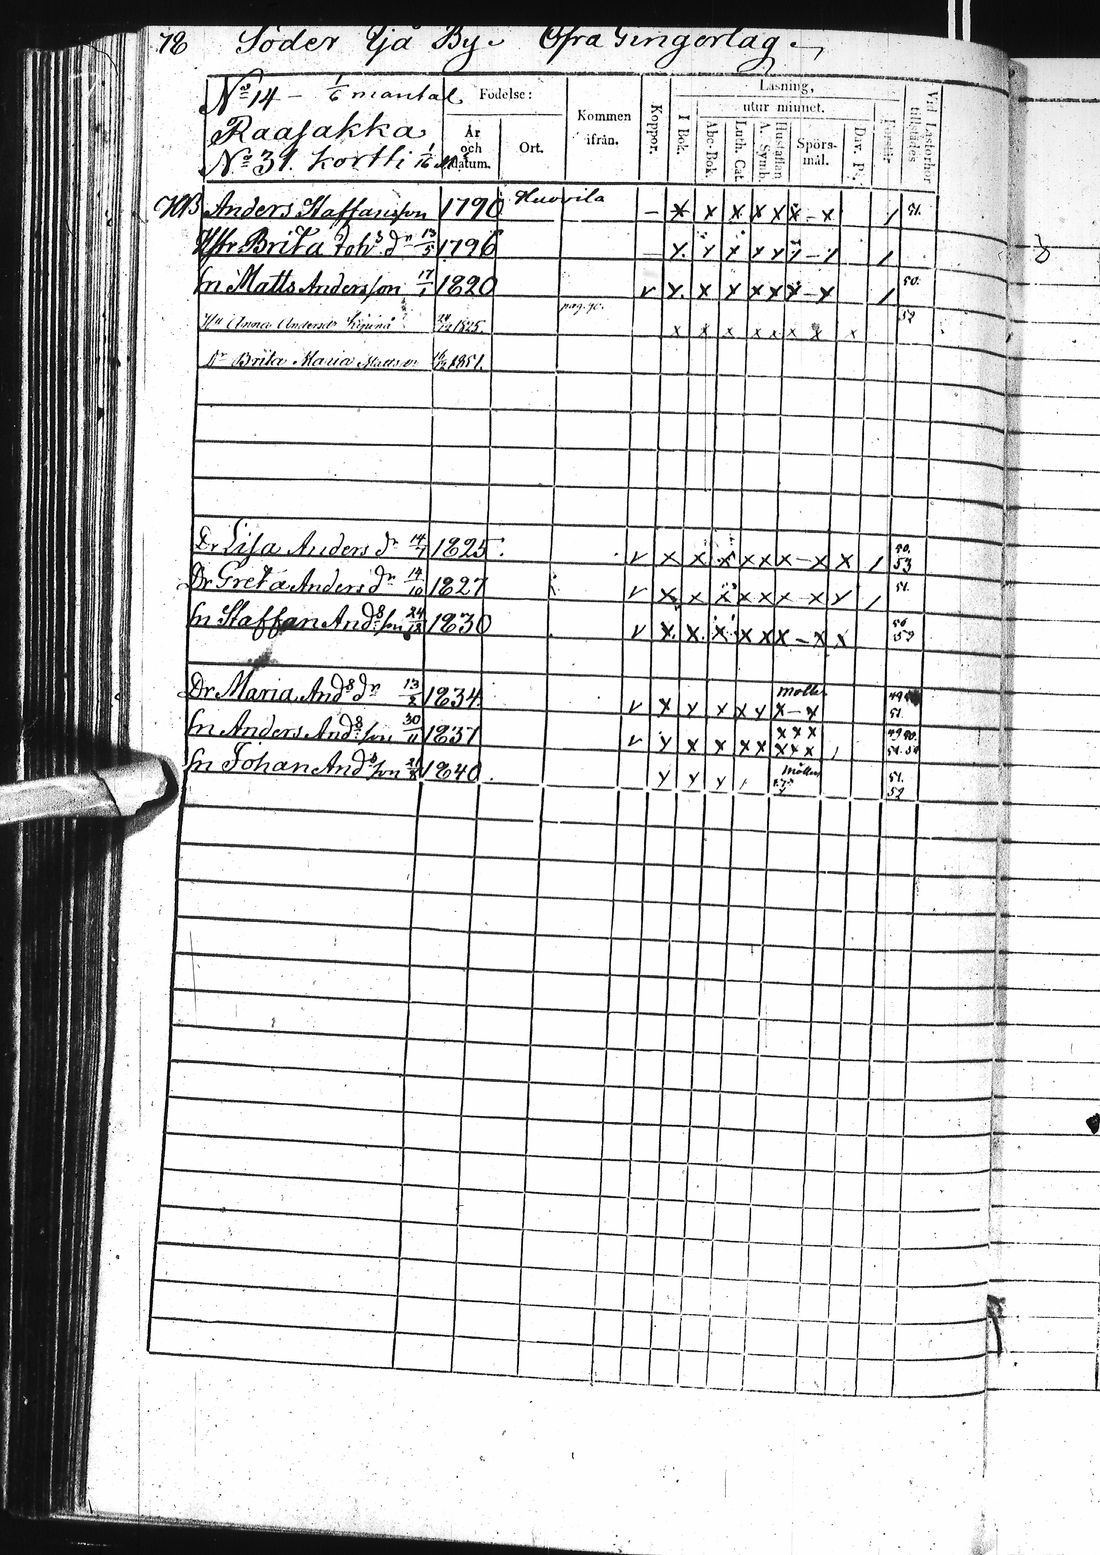 78 Söder Ijå By. Öfra Gingerlag.
N° 14 – 1/6 mantal
Raasakka
N° 31. Kortti 1/16 M
Födelse:
År och datum.
Ort.
Kommen ifrån.
Koppor.
Läsning,
I Bok.
utur minnet.
Abc-Bok.
Luth. Cat.
A. Symb.
Hustaflan
Spörs-mål.
Dav. Ps.
Förstår
Vid Läsförhör tillstädes.
HB Anders Staffansson 1790 Huovila – x x x x x x – x / 51.
Hstr Brita Joh:s dr 13/5 1796 – x. x x x x x – x /
Sn Matts Andersson 17/1 1820 v x. x x x x x – x / 50.
Hu Anna Andersdr 1825. pag. 90. x x x x x x x x 52
Dr Brita Maria Mattsdr 1851.
Dr Lisa Anders dr 14/7 1825. v x x x x x x – x x / 50. 53
Dr Greta Anders dr 14/10 1827 v x x x x x x – x x / 51.
Sn Staffan And:s son 24/12 1830 v x. x. x x x x – x x 50 52
Dr Maria And:s dr 13/2 1834. v x x x x x möller x – x 49 51.
Sn Anders And:s son 30/11 1837 v x x x x x x x x x x x / 49 50. 51.
Sn Johan And:s son 21/8 1840. x x x / möller 51. 52